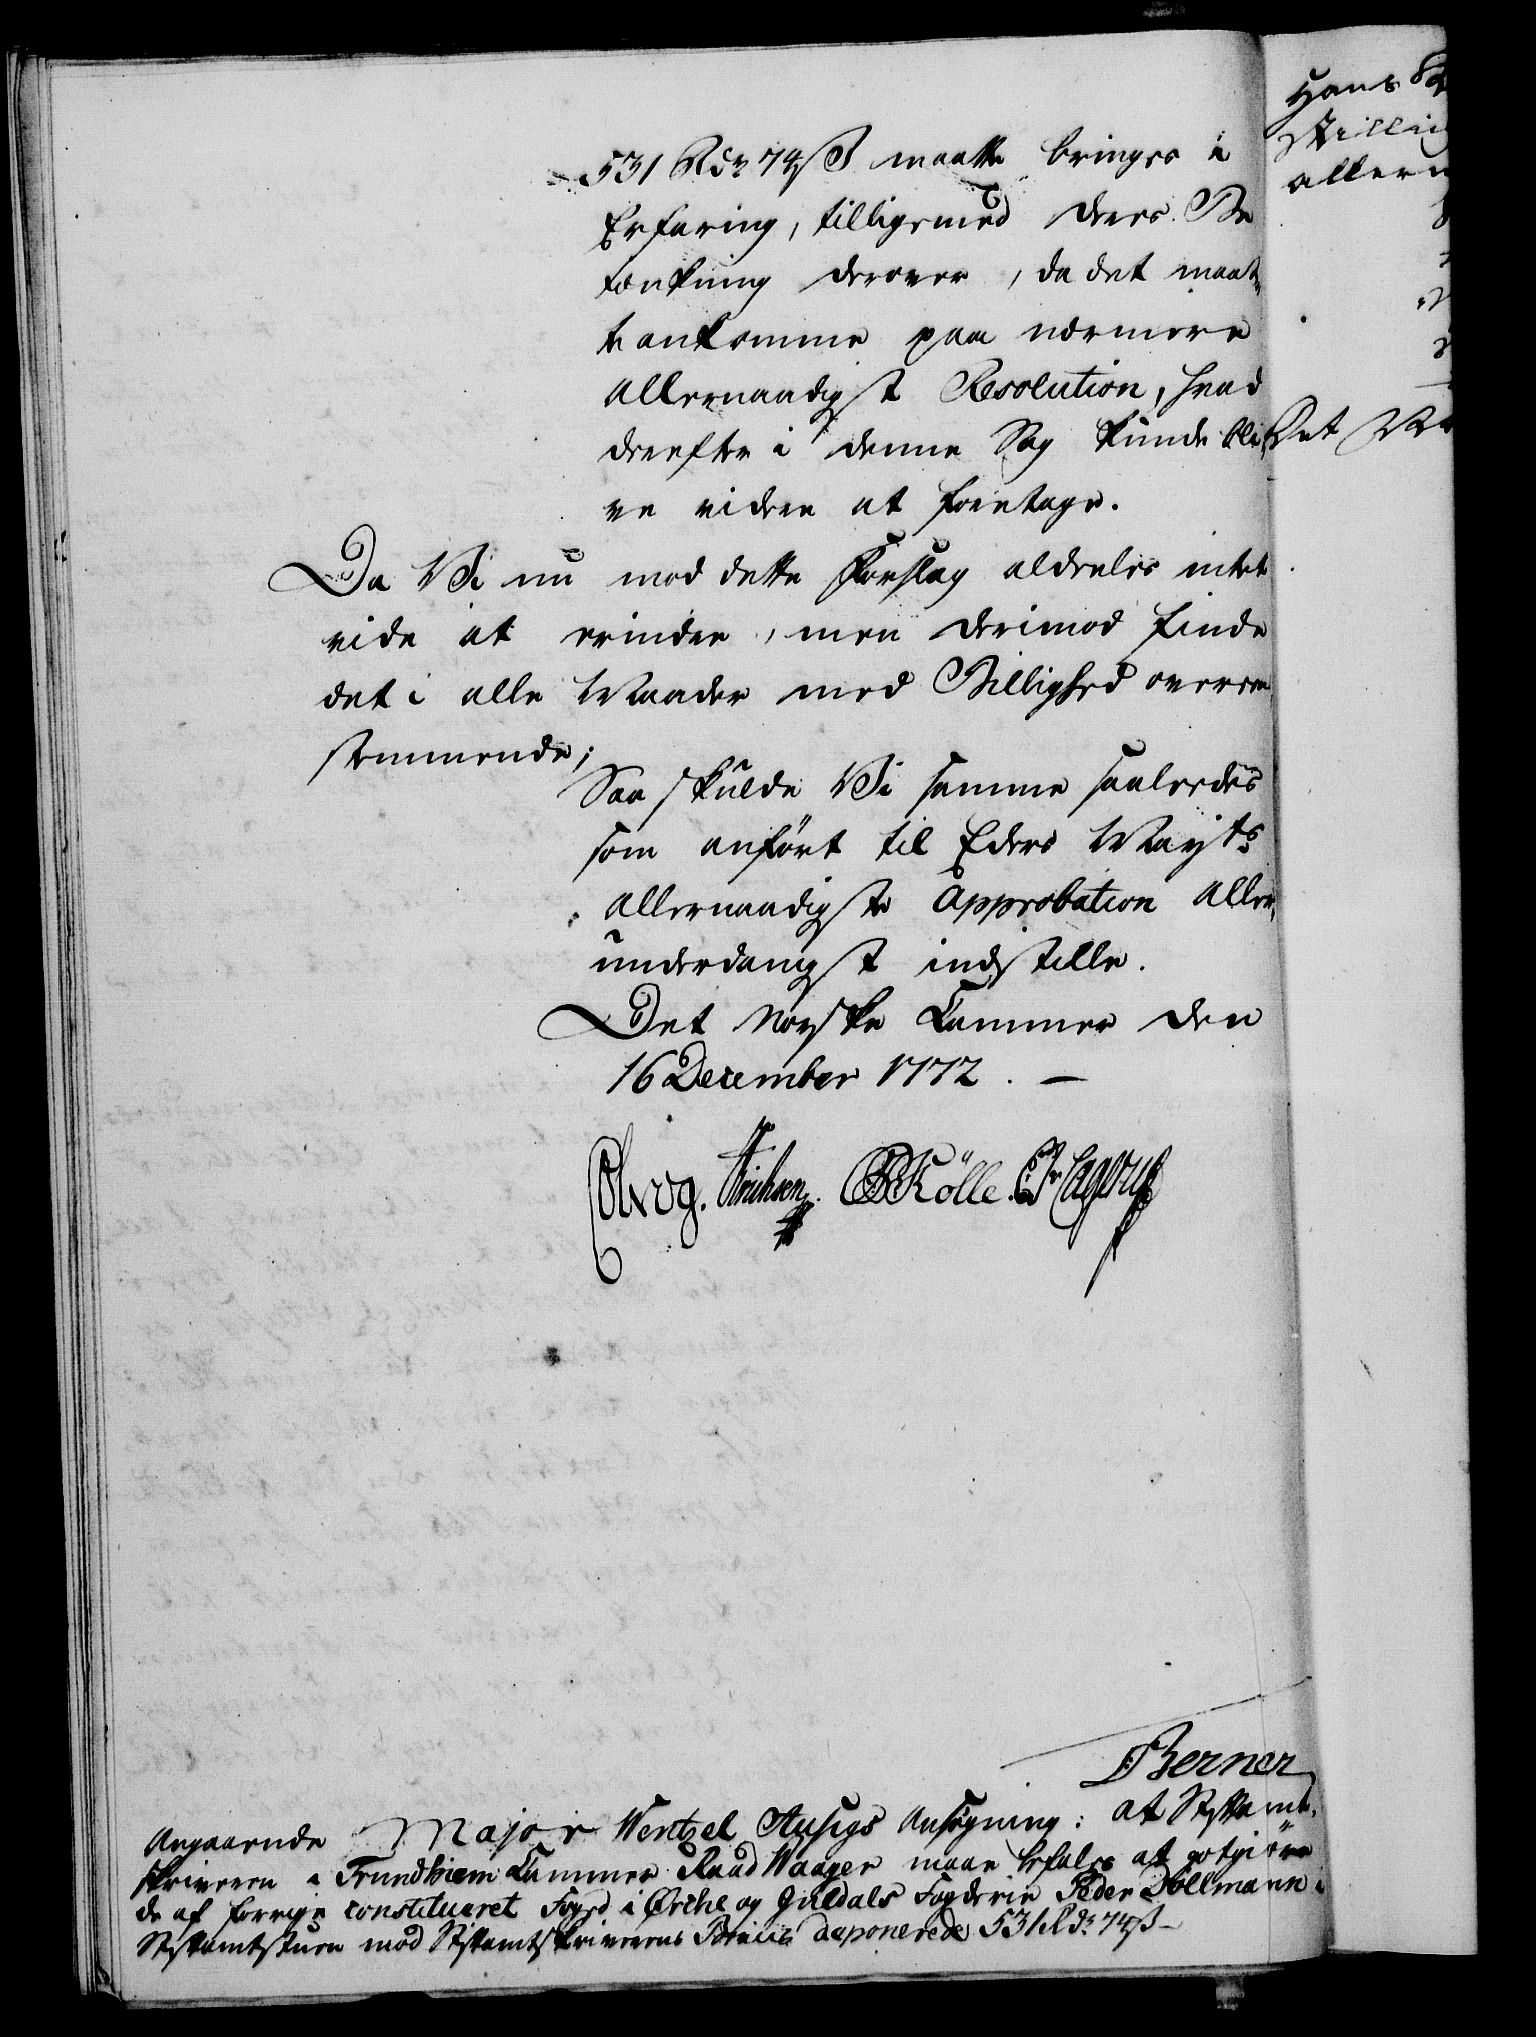 531 Rdr 74 ß maatte bringes i
Erfaring, tilligemed deres Be
tænkning derover, da det maat„
te ankomme paa nærmere
allernaadigst Resolution, hvad
derefter i denne Sag kunde bli„
ve videre at foretage.
Da Vi nu mod dette Forslag aldeeles intet
vide at erindre, men derimod finde
det i alle Maader med Billighed overeen„
stemmende;
Saa skulde Vi samme saaledes
som anført til Eders Mayts
allernaadigste Approbation aller„
underdanigst indstille.
Det Norske Kammer den
16 December 1772. —
Colvog. Erichsen. Kölle.
Berner
Angaaende Major Wentzel Ansøgning: at Stiftamt„
skriveren i Trundhiem Kammer Raad Waager maae befales at godtgiøre
de af forrige constitueret Foged i Orchedals og Guldals Fogderie Peder Vollmann i
Stiftamtstuen mod Stiftamtskriverens Beviis deponerede 531 Rdr 74 ß —
Hans
allern
Det